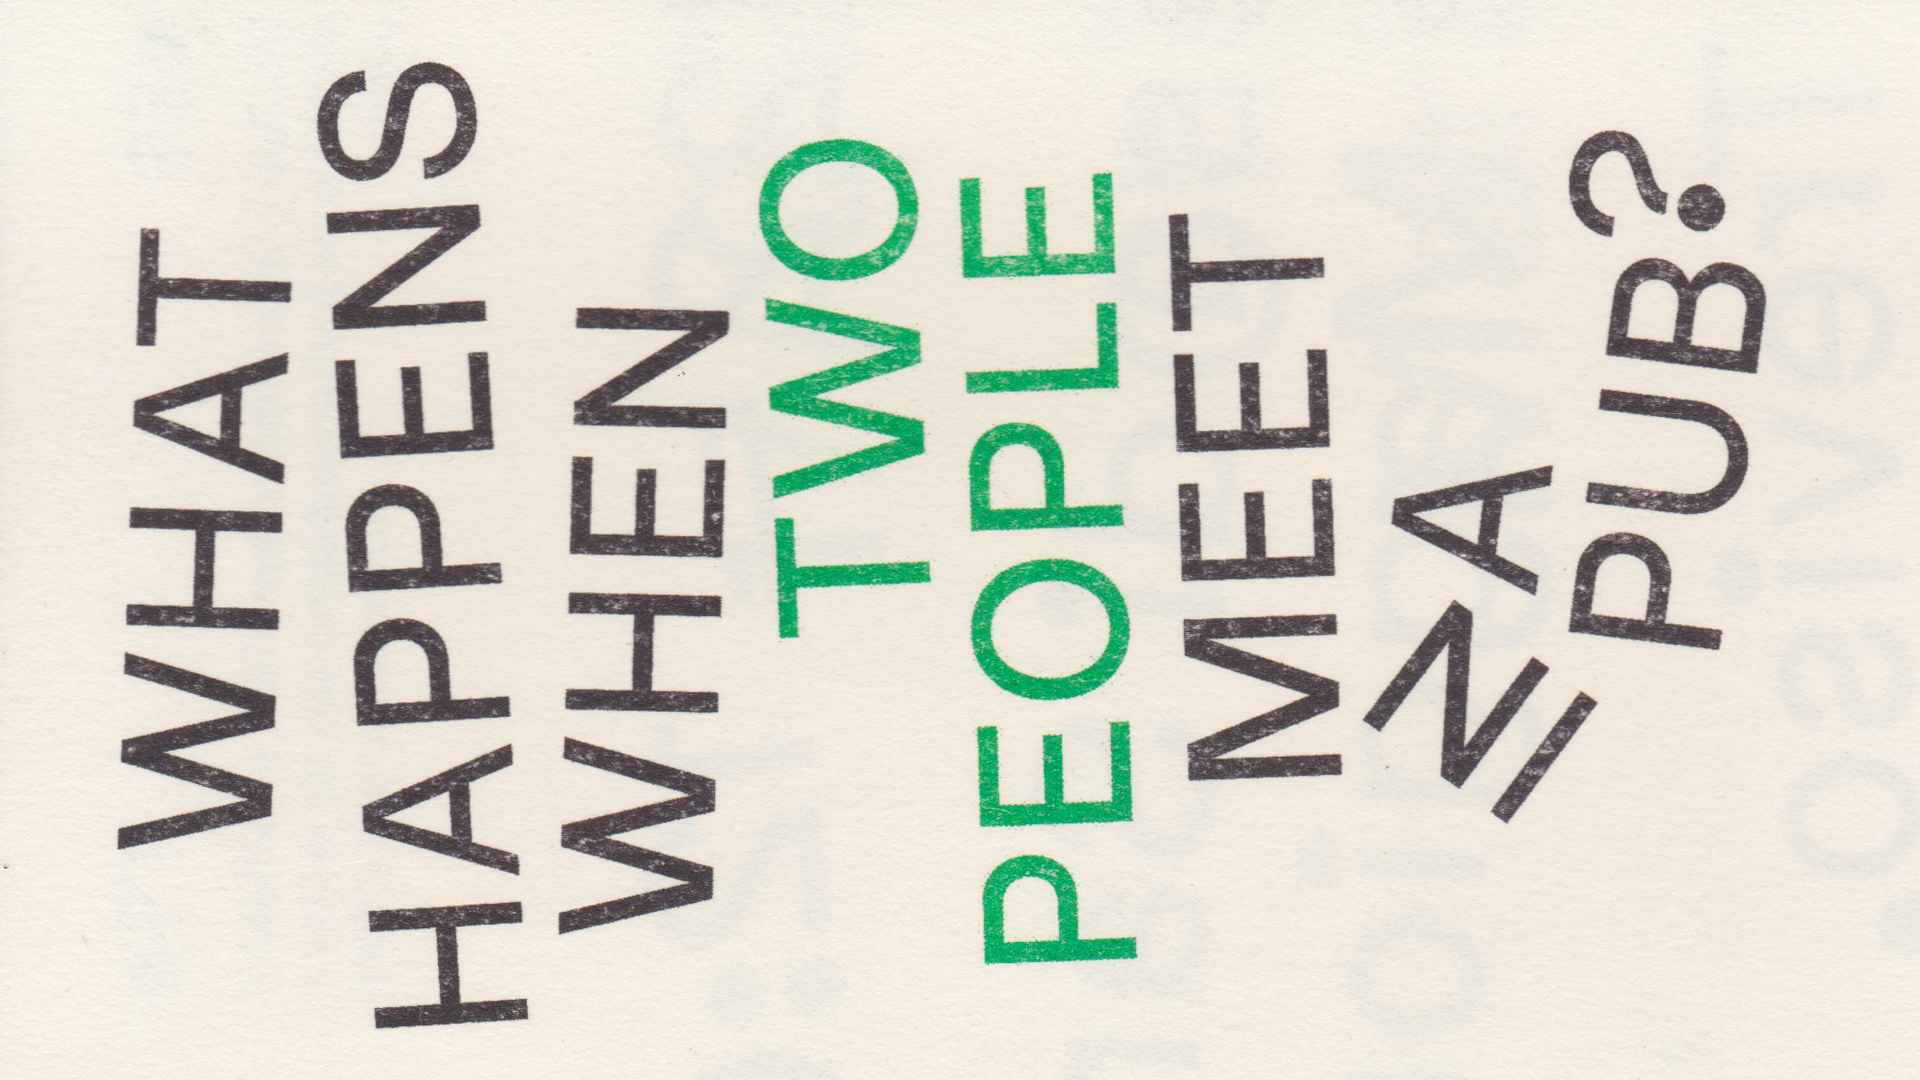 WHAT
HAPPENS
WHEN
TWO
PEOPLE
MEET
IN A
PUB?